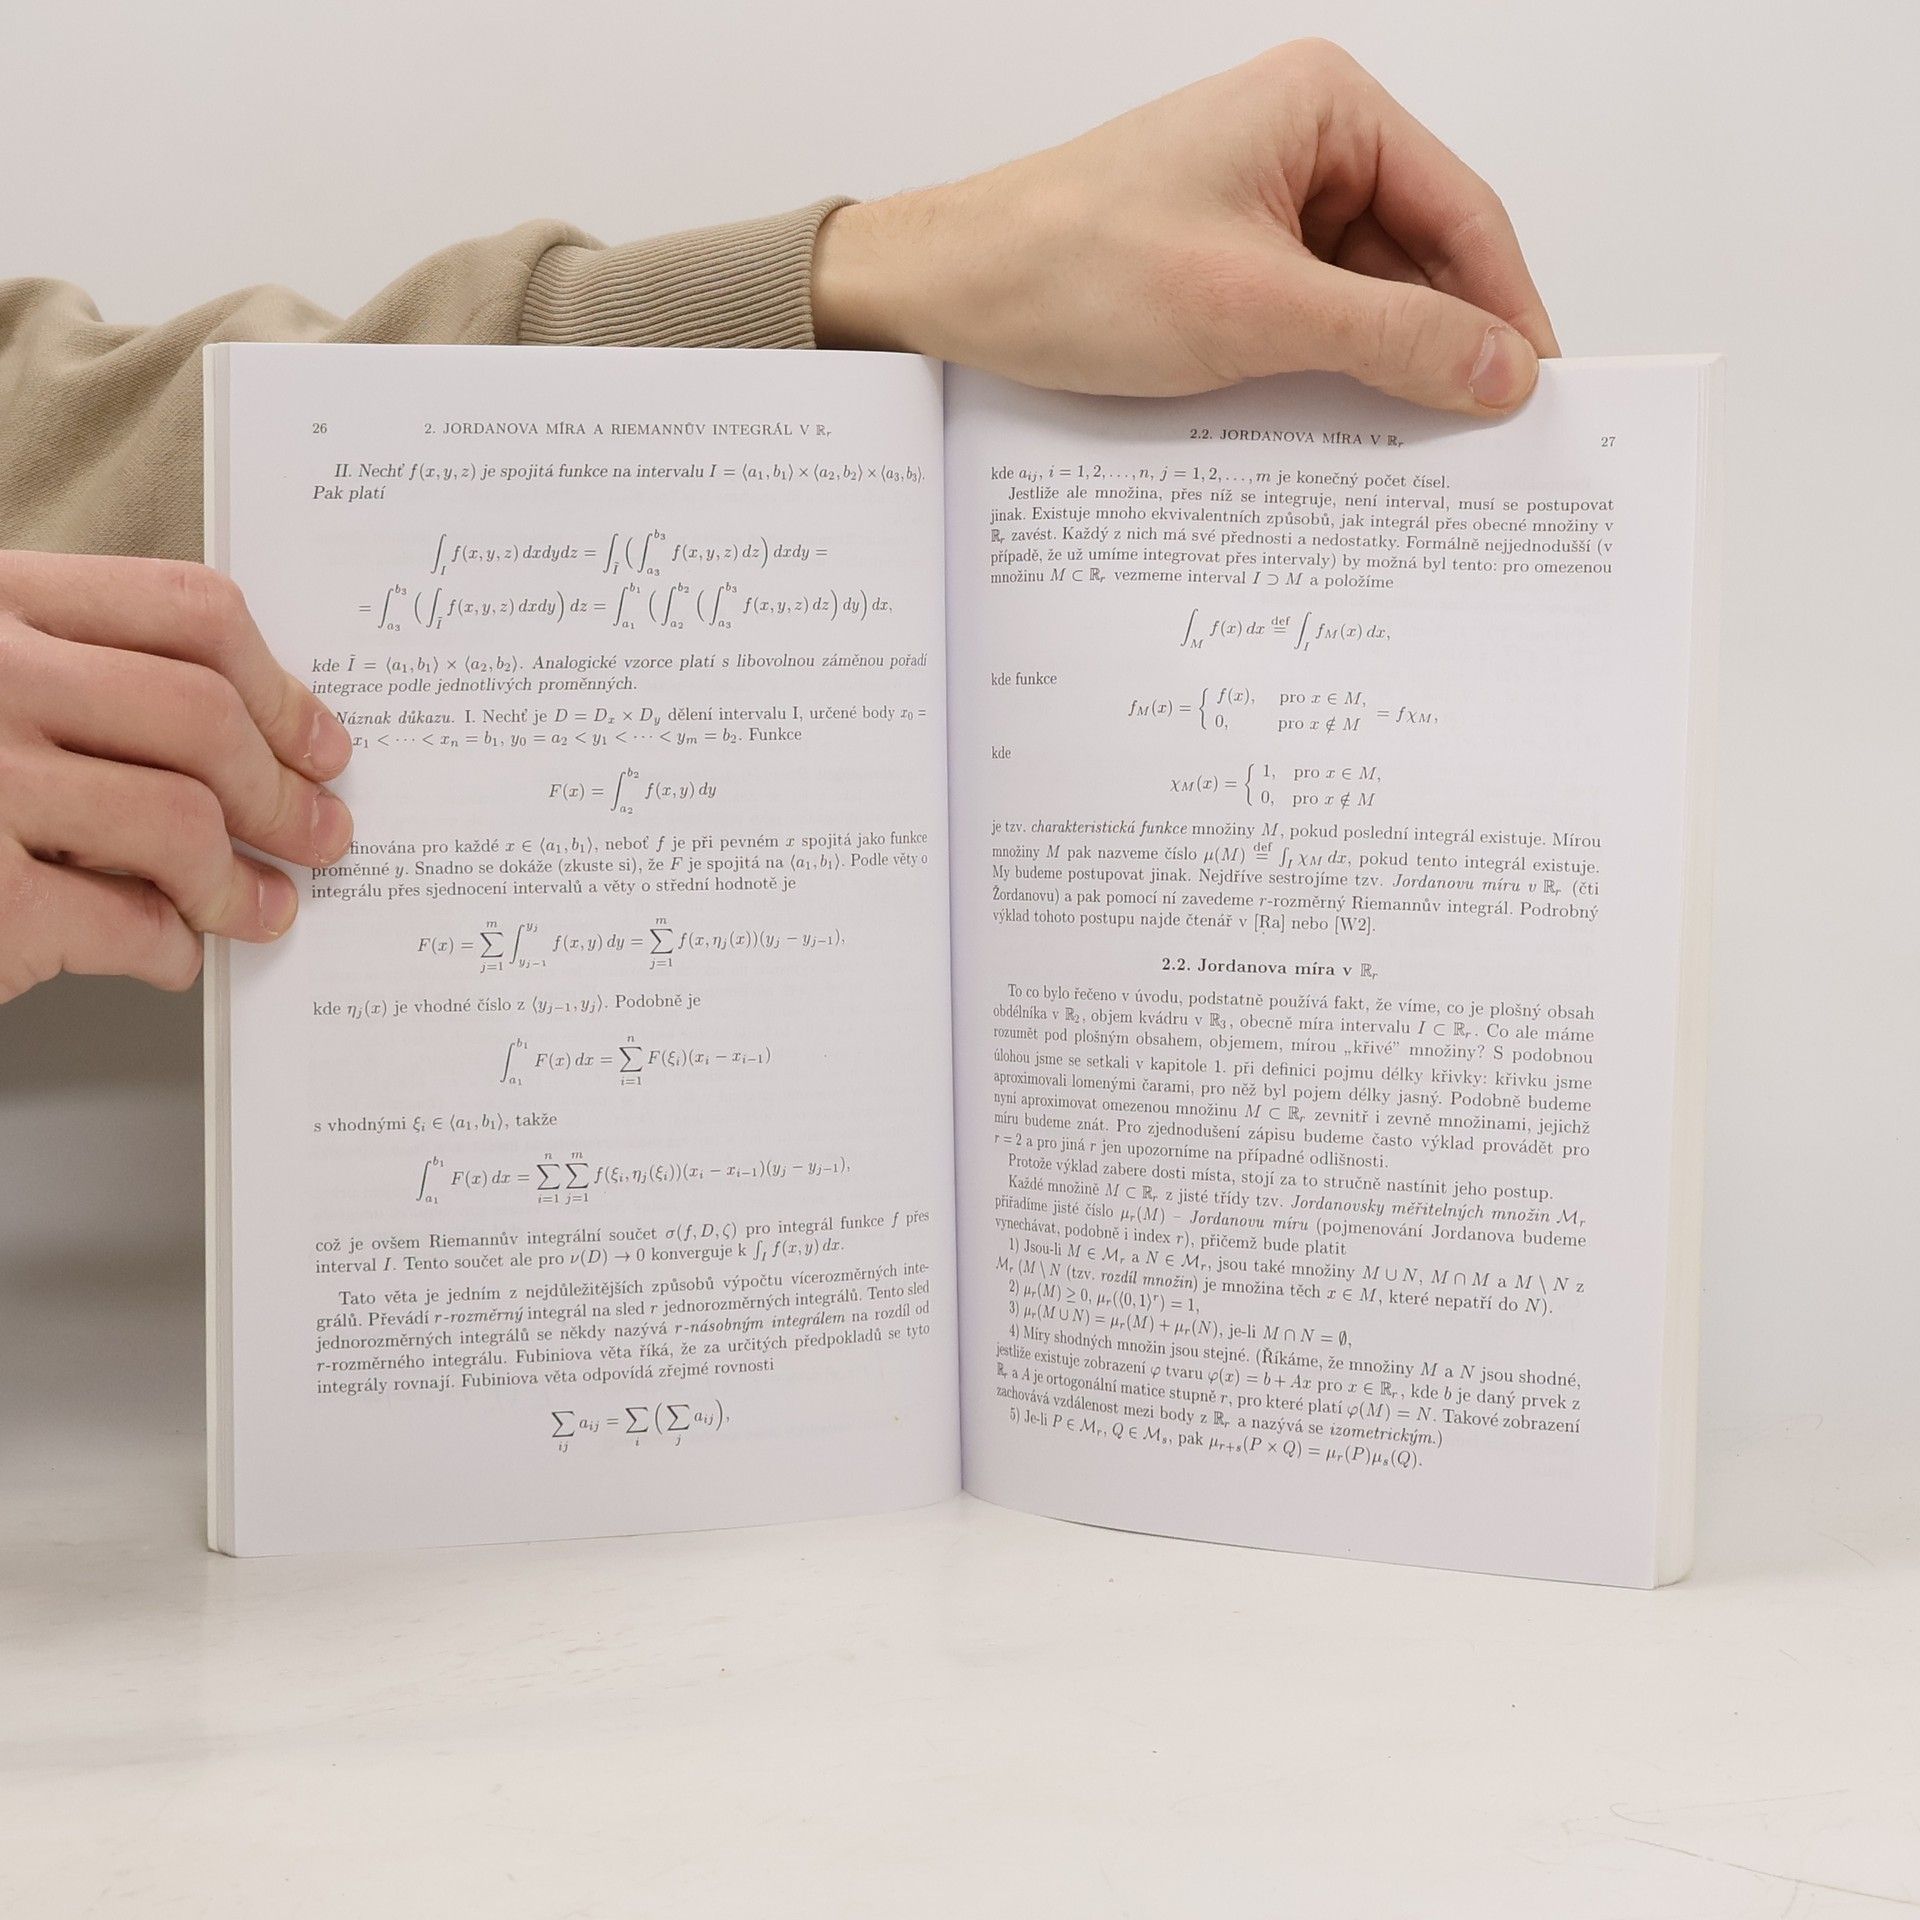 26 2. JORDANOVA MÍRA A RIEMANNŮV INTEGRÁL V ℝᵣ
II. Nechť f(x, y, z) je spojitá funkce na intervalu I = ⟨a₁, b₁⟩ × ⟨a₂, b₂⟩ × ⟨a₃, b₃⟩.
Pak platí
∫_I f(x, y, z) dxdydz = ∫_Ĩ (∫_{a₃}^{b₃} f(x, y, z) dz) dxdy =
= ∫_{a₃}^{b₃} (∫_Ĩ f(x, y, z) dxdy) dz = ∫_{a₁}^{b₁} (∫_{a₂}^{b₂} (∫_{a₃}^{b₃} f(x, y, z) dz) dy) dx,
kde Ĩ = ⟨a₁, b₁⟩ × ⟨a₂, b₂⟩. Analogické vzorce platí s libovolnou záměnou pořadí
integrace podle jednotlivých proměnných.
Náznak důkazu. I. Nechť je D = Dₓ × D_y dělení intervalu I, určené body x₀ =
x₁ < ··· < xₙ = b₁, y₀ = a₂ < y₁ < ··· < yₘ = b₂. Funkce
F(x) = ∫_{a₂}^{b₂} f(x, y) dy
finována pro každé x ∈ ⟨a₁, b₁⟩, neboť f je při pevném x spojitá jako funkce
proměnné y. Snadno se dokáže (zkuste si), že F je spojitá na ⟨a₁, b₁⟩. Podle věty o
integrálu přes sjednocení intervalů a věty o střední hodnotě je
F(x) = ∑_{j=1}^{m} ∫_{y_{j−1}}^{y_j} f(x, y) dy = ∑_{j=1}^{m} f(x, η_j(x))(y_j − y_{j−1}),
kde η_j(x) je vhodné číslo z ⟨y_{j−1}, y_j⟩. Podobně je
∫_{a₁}^{b₁} F(x) dx = ∑_{i=1}^{n} F(ξ_i)(x_i − x_{i−1})
s vhodnými ξ_i ∈ ⟨a₁, b₁⟩, takže
∫_{a₁}^{b₁} F(x) dx = ∑_{i=1}^{n} ∑_{j=1}^{m} f(ξ_i, η_j(ξ_i))(x_i − x_{i−1})(y_j − y_{j−1}),
což je ovšem Riemannův integrální součet σ(f, D, ζ) pro integrál funkce f přes
interval I. Tento součet ale pro ν(D) → 0 konverguje k ∫_I f(x, y) dx.
Tato věta je jedním z nejdůležitějších způsobů výpočtu vícerozměrných inte-
grálů. Převádí r-rozměrný integrál na sled r jednorozměrných integrálů. Tento sled
jednorozměrných integrálů se někdy nazývá r-násobným integrálem na rozdíl od
r-rozměrného integrálu. Fubiniova věta říká, že za určitých předpokladů se tyto
integrály rovnají. Fubiniova věta odpovídá zřejmé rovnosti
∑_{ij} a_{ij} = ∑_i (∑_j a_{ij}),
2.2. JORDANOVA MÍRA V ℝᵣ 27
kde a_{ij}, i = 1, 2, ..., n, j = 1, 2, ..., m je konečný počet čísel.
Jestliže ale množina, přes níž se integruje, není interval, musí se postupovat
jinak. Existuje mnoho ekvivalentních způsobů, jak integrál přes obecné množiny v
ℝᵣ zavést. Každý z nich má své přednosti a nedostatky. Formálně nejjednodušší (v
případě, že už umíme integrovat přes intervaly) by možná byl tento: pro omezenou
množinu M ⊂ ℝᵣ vezmeme interval I ⊃ M a položíme
∫_M f(x) dx ≝ ∫_I f_M(x) dx,
kde funkce
f_M(x) = { f(x), pro x ∈ M, = fχ_M,
0, pro x ∉ M
kde
χ_M(x) = { 1, pro x ∈ M,
0, pro x ∉ M
je tzv. charakteristická funkce množiny M, pokud poslední integrál existuje. Mírou
množiny M pak nazveme číslo μ(M) ≝ ∫_I χ_M dx, pokud tento integrál existuje.
My budeme postupovat jinak. Nejdříve sestrojíme tzv. Jordanovu míru v ℝᵣ (čti
Žordanovu) a pak pomocí ní zavedeme r-rozměrný Riemannův integrál. Podrobný
výklad tohoto postupu najde čtenář v [Ra] nebo [W2].
2.2. Jordanova míra v ℝᵣ
To co bylo řečeno v úvodu, podstatně používá fakt, že víme, co je plošný obsah
obdélníka v ℝ₂, objem kvádru v ℝ₃, obecně míra intervalu I ⊂ ℝᵣ. Co ale máme
rozumět pod plošným obsahem, objemem, mírou „křivé” množiny? S podobnou
úlohou jsme se setkali v kapitole 1. při definici pojmu délky křivky: křivku jsme
aproximovali lomenými čarami, pro něž byl pojem délky jasný. Podobně budeme
nyní aproximovat omezenou množinu M ⊂ ℝᵣ zevnitř i zevně množinami, jejichž
míru budeme znát. Pro zjednodušení zápisu budeme často výklad provádět pro
r = 2 a pro jiná r jen upozorníme na případné odlišnosti.
Protože výklad zabere dosti místa, stojí za to stručně nastínit jeho postup.
Každé množině M ⊂ ℝᵣ z jisté třídy tzv. Jordanovsky měřitelných množin ℳᵣ
přiřadíme jisté číslo μᵣ(M) – Jordanovu míru (pojmenování Jordanova budeme
vynechávat, podobně i index r), přičemž bude platit
1) Jsou-li M ∈ ℳᵣ a N ∈ ℳᵣ, jsou také množiny M ∪ N, M ∩ M a M \ N z
ℳᵣ (M \ N (tzv. rozdíl množin) je množina těch x ∈ M, které nepatří do N).
2) μᵣ(M) ≥ 0, μᵣ(⟨0, 1⟩ʳ) = 1,
3) μᵣ(M ∪ N) = μᵣ(M) + μᵣ(N), je-li M ∩ N = ∅,
4) Míry shodných množin jsou stejné. (Říkáme, že množiny M a N jsou shodné,
jestliže existuje zobrazení φ tvaru φ(x) = b + Ax pro x ∈ ℝᵣ, kde b je daný prvek z
ℝᵣ a A je ortogonální matice stupně r, pro které platí φ(M) = N. Takové zobrazení
zachovává vzdálenost mezi body z ℝᵣ a nazývá se izometrickým.)
5) Je-li P ∈ ℳᵣ, Q ∈ ℳₛ, pak μᵣ₊ₛ(P × Q) = μᵣ(P)μₛ(Q).